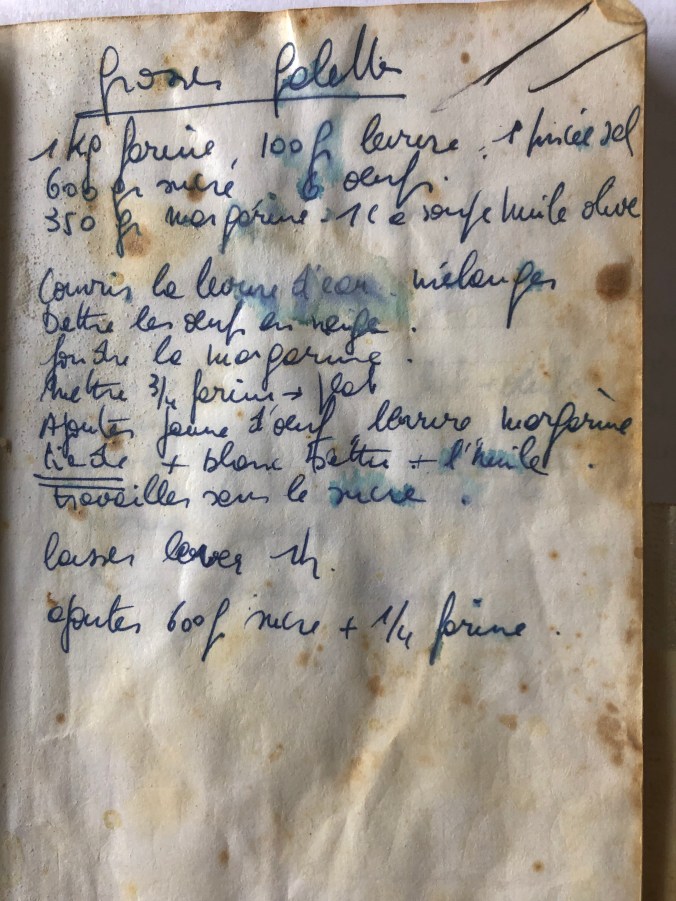 Grosses Galettes
1 Kg farine, 100 g levure, 1 pincée sel
600 gr sucre 6 oeufs.
350 gr margarine. 1 c a soupe huile olive
Couvrir la levure d'eau. mélanger
Battre les oeufs en neige.
fondre la margarine.
Mettre 3/4 farine → plat
Ajouter jaune d'oeuf levure margarine
tiède + blanc battu + l'huile.
travailler sans le sucre.
laisser lever 1h.
ajouter 600g sucre + 1/4 farine.